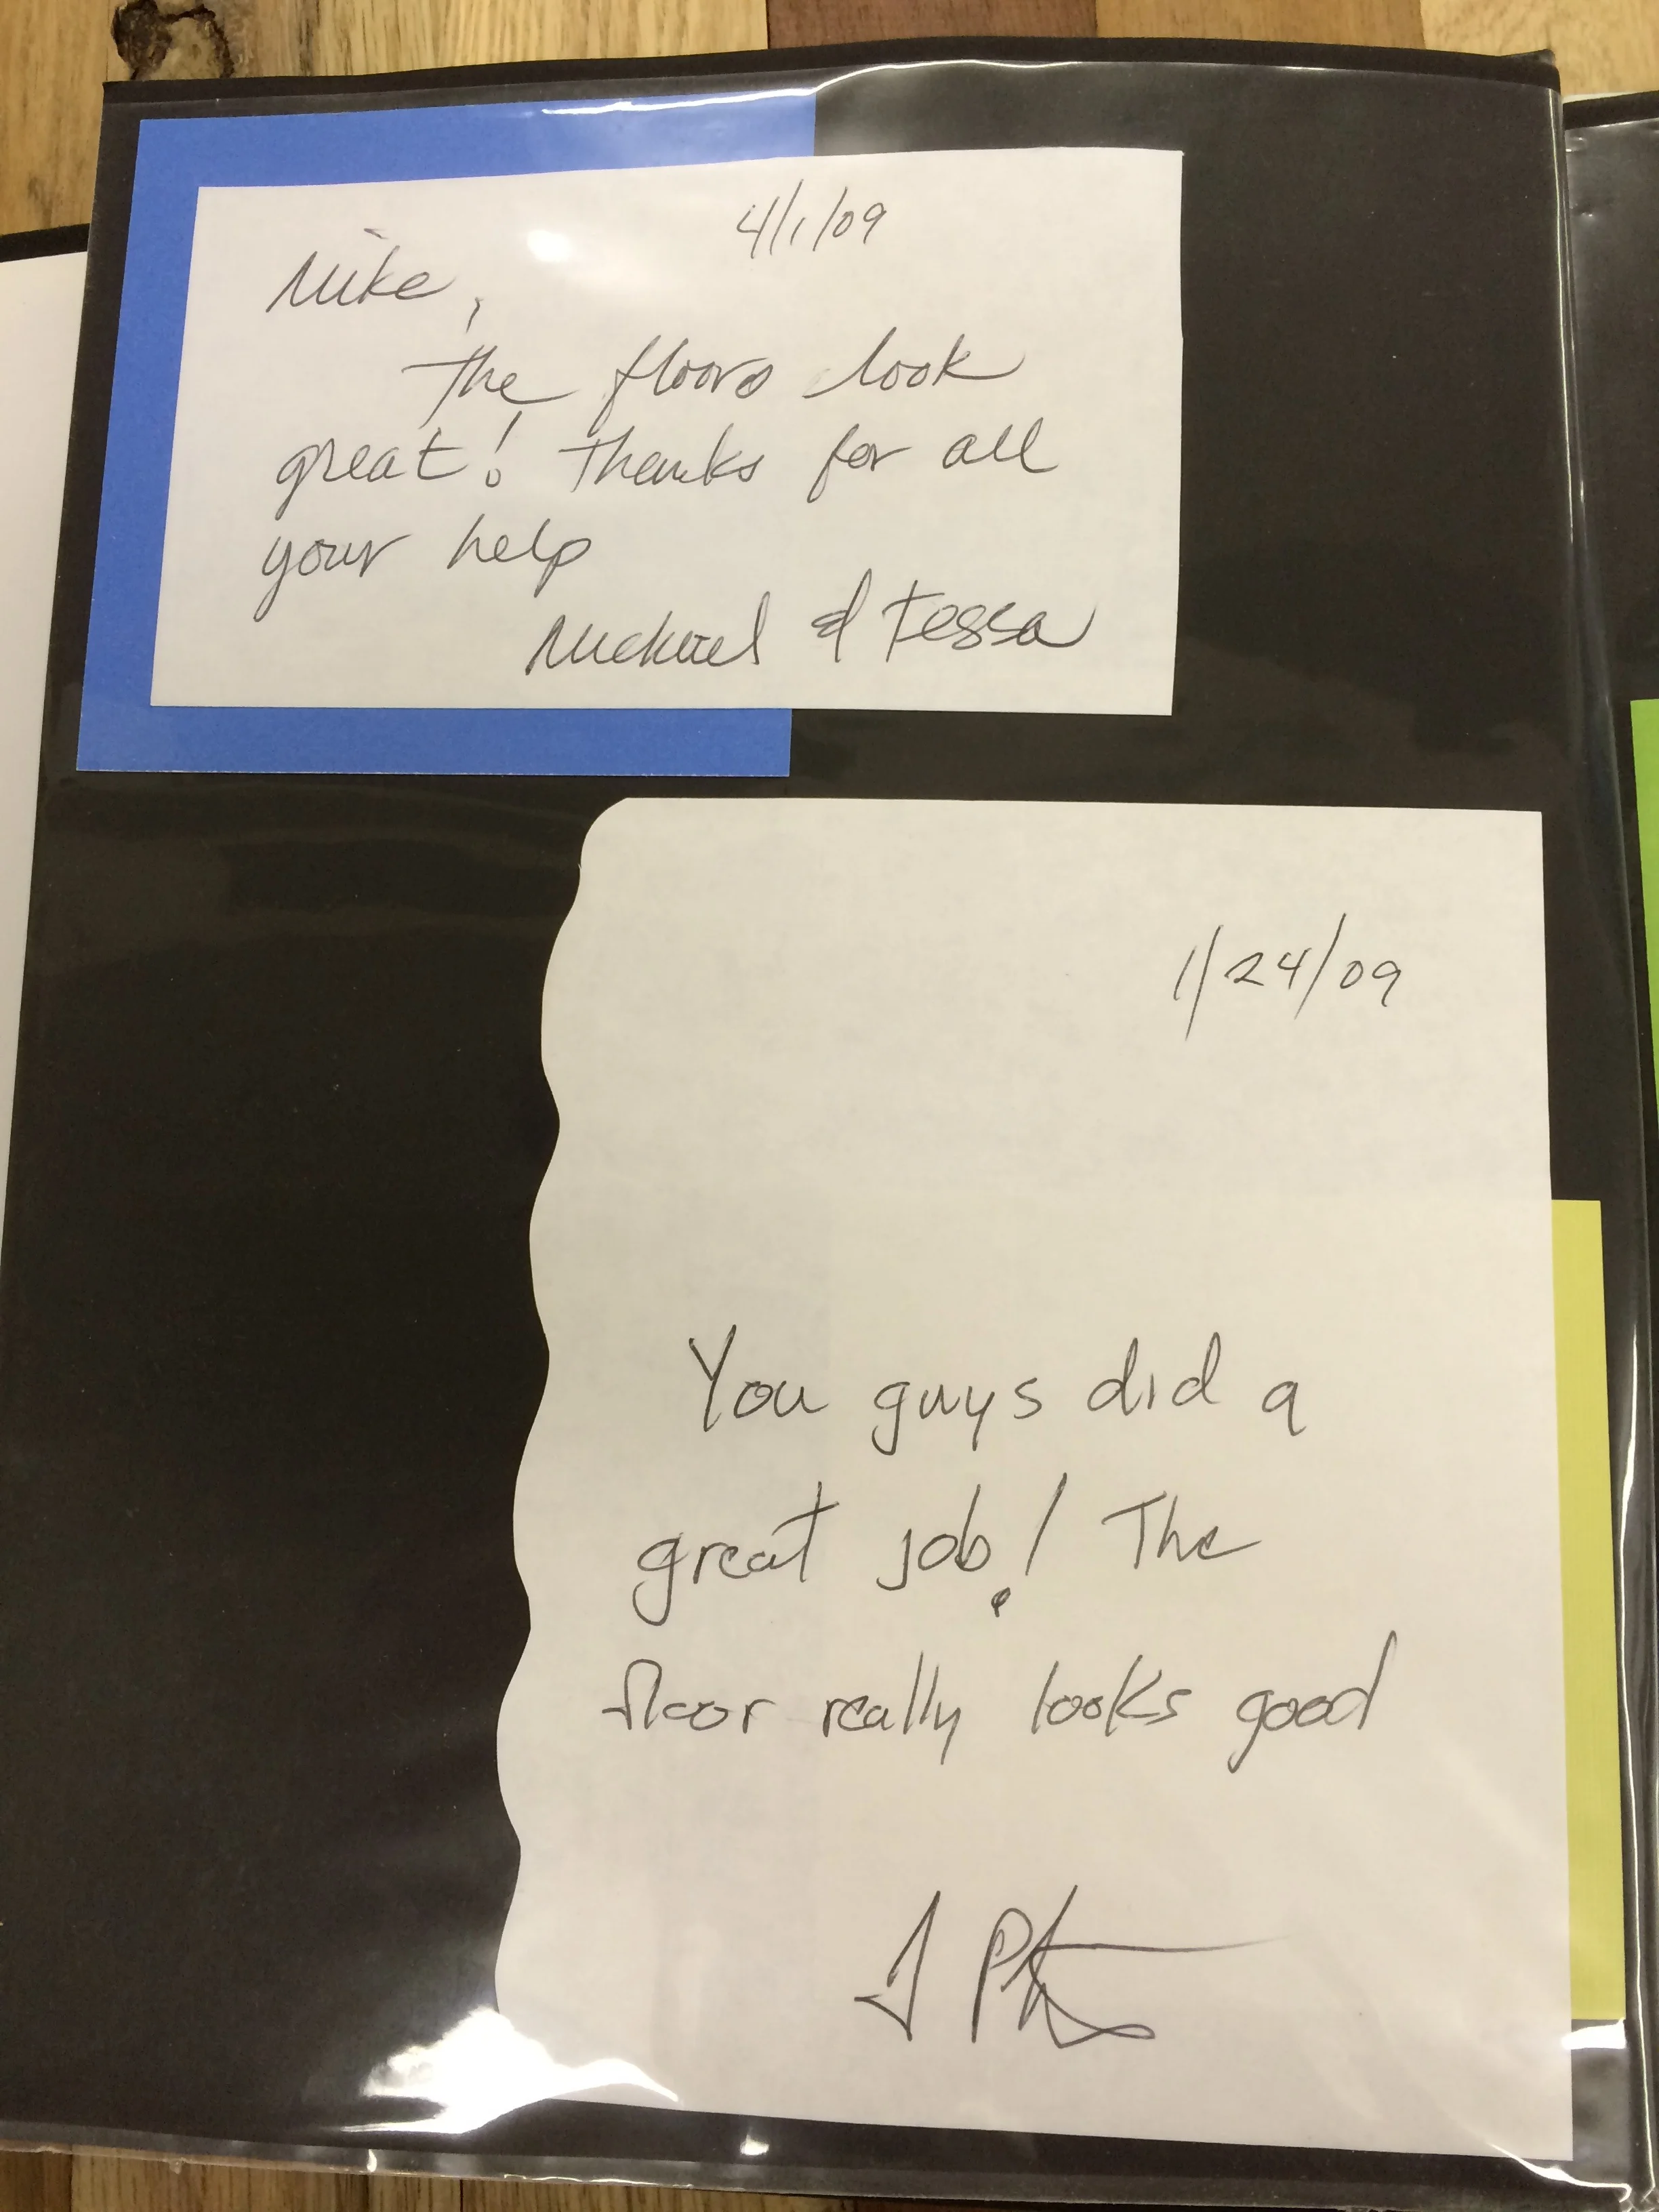 4/1/09
Mike,
The floors look
great! Thanks for all
your help
Michael & Tessa
1/24/09
You guys did a
great job! The
floor really looks good
J